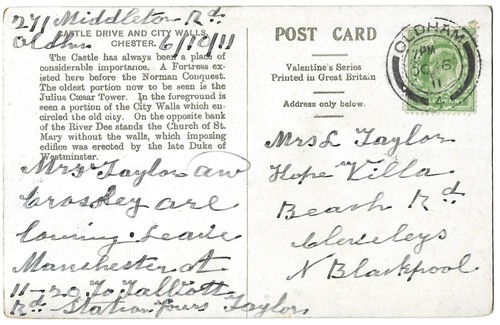 271 Middleton Rd
Oldhm 6/10/11
CASTLE DRIVE AND CITY WALLS,
CHESTER.
The Castle has always been a place of
considerable importance. A Fortress ex-
isted here before the Norman Conquest.
The oldest portion now to be seen is the
Julius Cæsar Tower. In the foreground is
seen a portion of the City Walls which en-
circled the old city. On the opposite bank
of the River Dee stands the Church of St.
Mary without the walls, which imposing
edifice was erected by the late Duke of
Westminster.
Mrs Taylor an
Crossley are
Coming. Leave
Manchester at
11-20 To Talbott
Rd Station Yours Taylor
POST CARD
Valentine's Series
Printed in Great Britain
Address only below.
OLDHAM
PM
OC 6
11
Mrs L Taylor
Hope Villa
Beach Rd
Cleveleys
N Blackpool